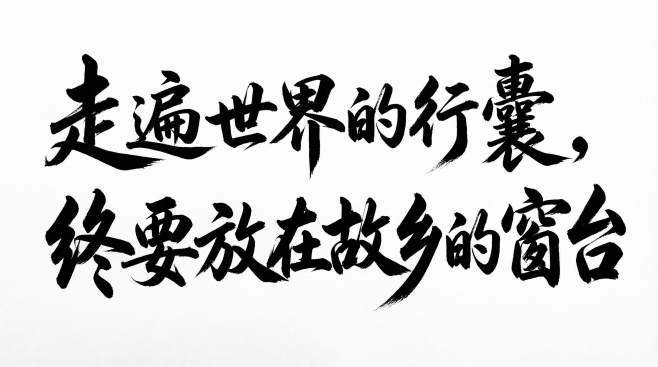 走遍世界的行囊，
终要放在故乡的窗台